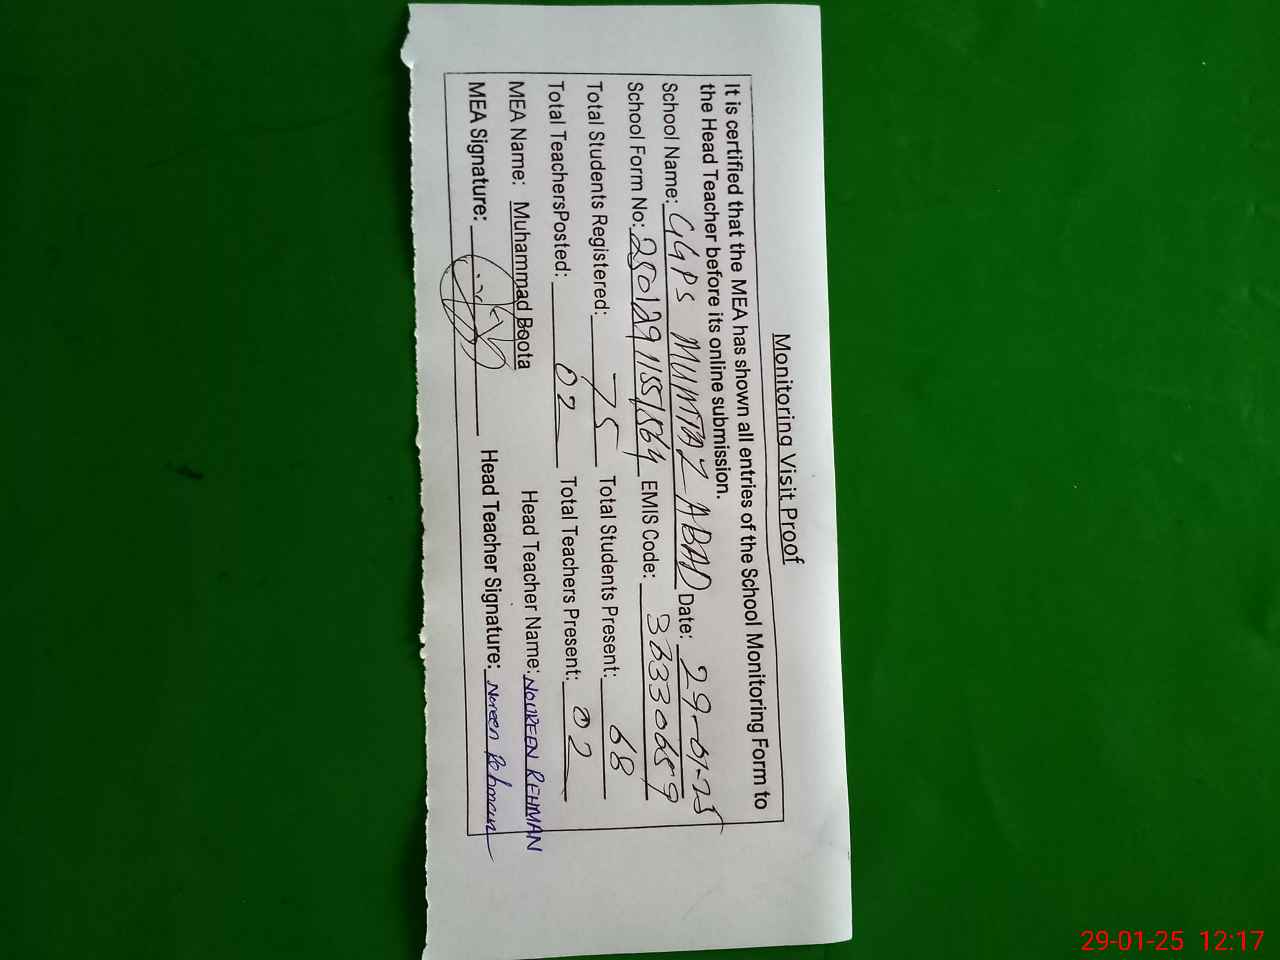 Monitoring Visit Proof
It is certified that the MEA has shown all entries of the School Monitoring Form to
the Head Teacher before its online submission.
School Name: GGPS MUMTAZ ABAD Date: 29-01-25
School Form No: 25012911551564 EMIS Code: 33330659
Total Students Registered: 75 Total Students Present: 68
Total TeachersPosted: 02 Total Teachers Present: 02
MEA Name: Muhammad Boota Head Teacher Name: NOUREEN REHMAN
MEA Signature: Head Teacher Signature: Noreen Rehman
29-01-25 12:17